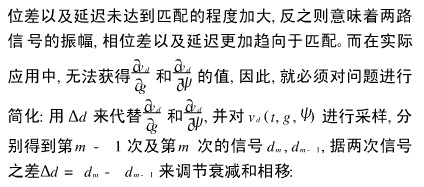 位差以及延迟未达到匹配的程度加大, 反之则意味着两路
信号的振幅, 相位差以及延迟更加趋向于匹配。而在实际
应用中, 无法获得∂v_d/∂g 和∂v_d/∂ψ 的值, 因此, 就必须对问题进行
简化: 用 Δd 来代替∂v_d/∂g 和∂v_d/∂ψ, 并对 v_d (t, g, ψ) 进行采样, 分
别得到第 m - 1 次及第 m 次的信号 d_m, d_{m-1}, 据两次信号
之差Δd = d_m - d_{m-1} 来调节衰减和相移: